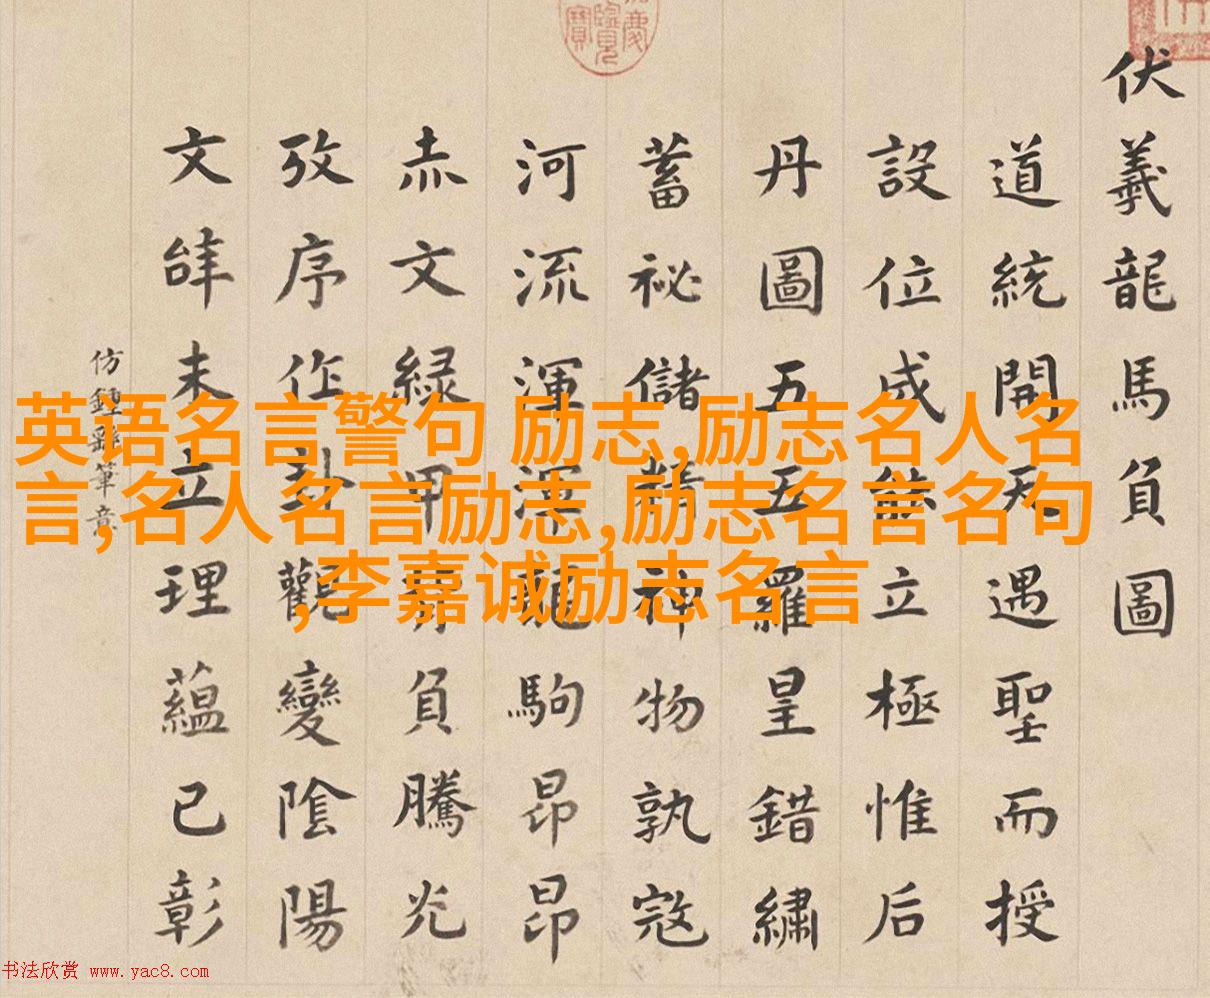 伏羲龍馬負圖
道統開天遇聖而授
設位成能立極惟后
丹圖五五羅皇錯繡
蓄祕儲精神物孰寇
河流渾渾龍駒昂昂
赤文緑甲負騰光
攷序作卦觀變陰陽
文未立理蘊已彰
仿鍾繇筆意
慶
覽
寶
英语名言警句 励志,励志名人名
言,名人名言励志,励志名言名句
,李嘉诚励志名言
书法欣赏 www.yac8.com